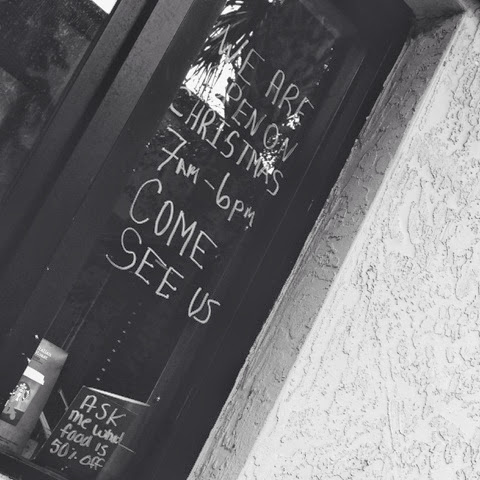 WE ARE
OPEN ON
CHRISTMAS
7AM-6pm
COME
SEE US
ASK
me what
food is
50% off